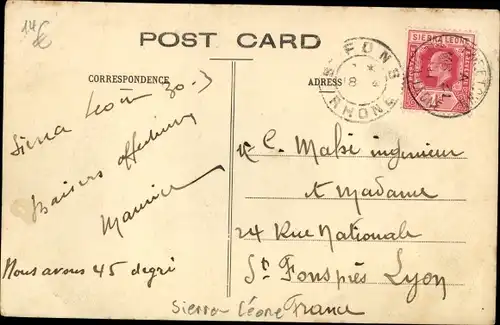 14€
POST CARD
CORRESPONDENCE
ADRESS
SIERRA LEONE
ST FONS
RHONE
Sierra Leone 30-3
Baisers affectueux
Maurice
Nous avons 45 degré
Mr C. Malsé ingenieur
et Madame
24 Rue Nationale
St Fons près Lyon
France
Sierra Léone